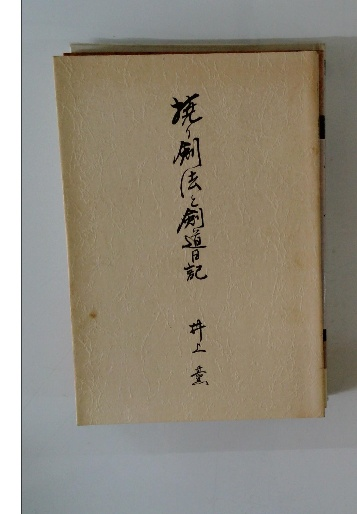 撓り剣法と剣道日記
井上 薫